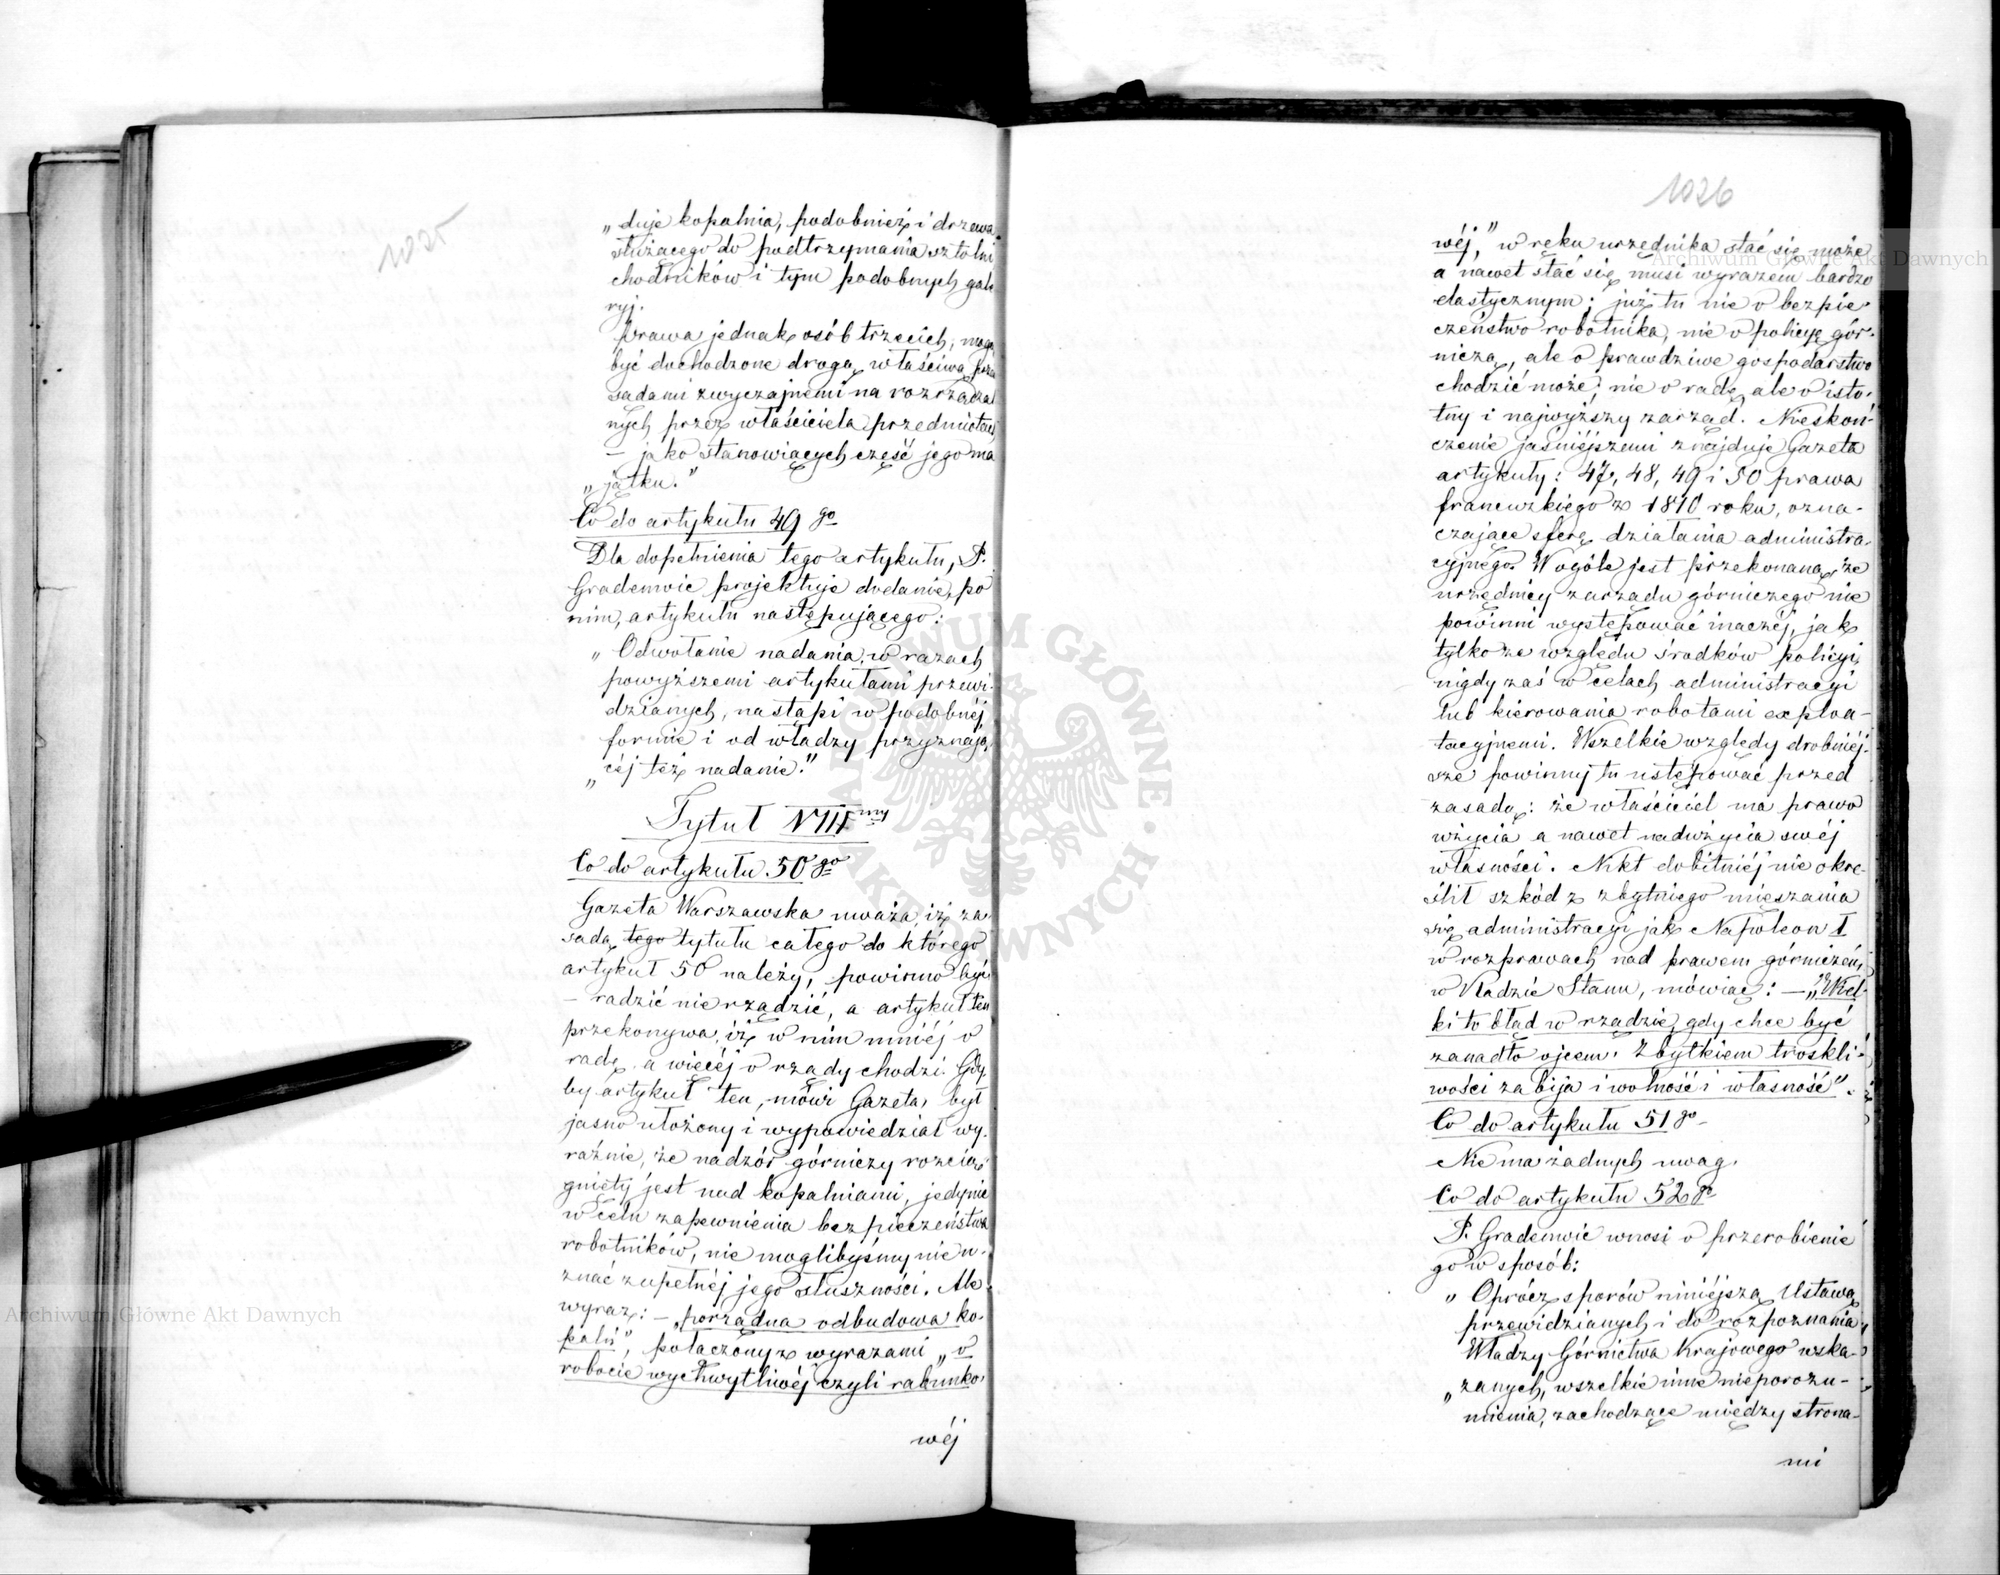 1025
„duje kopalnia, podobnież i drzewa
służącego do podtrzymania sztolni
chodników i tym podobnych gale
ryj.
Prawa jednak osób trzecich, mogą
być dochodzone drogą właściwą, poza
sadami zwyczajnemi na rozrządzal
nych przez właściciela przedmiotach
– jako stanowiących część jego ma
„jątku."
Co do artykułu 49go
Dla dopełnienia tego artykułu, P.
Gradenwic projektuje dodanie, po
nim, artykułu następującego:
„Odwołanie nadania, w razach
powyższemi artykułami przewi-
dzianych, nastąpi w podobnéj
formie i od władzy przyznają
„céj też nadanie."
Tytuł VIIImy
Co do artykułu 50go
Gazeta Warszawska uważa, iż za
sadą tego tytułu całego do którego
artykuł 50 należy, powinno być
– radzić nie rządzić, a artykuł ten
przekonywa, iż w nim mniéj o
radę, a więcéj o rządy chodzi. Gdy
by artykuł ten, mówi Gazeta, był
jasno ułożony i wypowiedział wy-
raźnie, że nadzór górniczy rozcią
gnięty jest nad kopalniami, jedynie
w celu zapewnienia bezpieczeństwa
robotników, nie moglibyśmy nie u-
znać zupełnéj jego słuszności. Ale
wyraz: – „porządna odbudowa ko-
palń", połączony z wyrazami „o
robocie wychwytliwéj czyli rabunko-
wéj
1026
wéj," w ręku urzędnika stać się może
a nawet stać się musi wyrazem bardzo
elastycznym; już tu nie o bezpie-
czeństwo robotnika, nie o policyę gór-
niczą, ale o prawdziwe gospodarstwo
chodzić może; nie o radę, ale o isto-
tny i najwyższy zarząd. Nieskoń-
czenie jaśniéjszemi znajduje Gazeta
artykuły: 47, 48, 49 i 50 prawa
francuzkiego z 1810 roku, ozna-
czające sferę działania administra-
cyjnego. Wogóle jest przekonaną, że
urzędnicy zarządu górniczego nie
powinni występować inaczéj, jak
tylko ze względu środków policyi,
nigdy zaś w celach administracyi
lub kierowania robotami exploa-
tacyjnemi. Wszelkie względy drobniéj-
sze powinny tu ustępować przed
zasadą: że właściciel ma prawo
użycia a nawet nadużycia swéj
własności. Nikt dobitniéj nie okre-
ślił szkód z zbytniego mieszania
się administracyi jak Napoleon I
w rozprawach nad prawem górniczém,
w Radzie Stanu, mówiąc: – „Wiel-
ki to błąd w rządzie, gdy chce być
zanadto ojcem. Zbytkiem troskli-
wości zabija i wolność i własność".
Co do artykułu 51go
Nie ma żadnych uwag.
Co do artykułu 52go
P. Gradenwic wnosi o przerobienie
go w sposób:
„Oprócz sporów niniéjszą Ustawą
przewidzianych i do rozpoznania
Władzy Górnictwa Krajowego wska-
„zanych, wszelkie inne nieporozu-
mienia, zachodzące między strona-
mi
Archiwum Główne Akt Dawnych
Archiwum Główne Akt Dawnych
ARCHIWUM GŁÓWNE AKT DAWNYCH